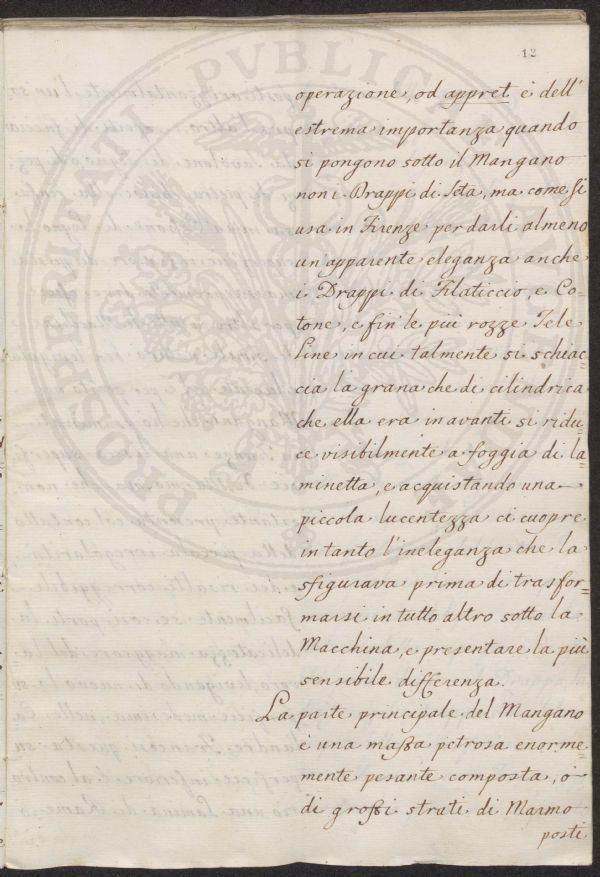 12
operazione, od appret è dell'
estrema importanza quando
si pongono sotto il Mangano
non i Drappi di Seta, ma come si
usa in Firenze per darli almeno
un'apparente eleganza anche
i Drappi di Filaticcio, e Co=
tone, e fin' le più rozze Tele
Line in cui talmente si schiac=
cia la grana che di cilindrica
che ella era in avanti si ridu=
ce visibilmente a foggia di la=
minetta, e acquistando una
piccola lucentezza ci cuopre
in tanto l'ineleganza che la
sfigurava prima di trasfor=
marsi in tutto altro sotto la
Macchina, e presentare la più
sensibile differenza.
La parte principale del Mangano
è una maßa petrosa enorme=
mente pesante composta, ò
di großi strati di Marmo
posti
PROSPERITATI PVBLICAE